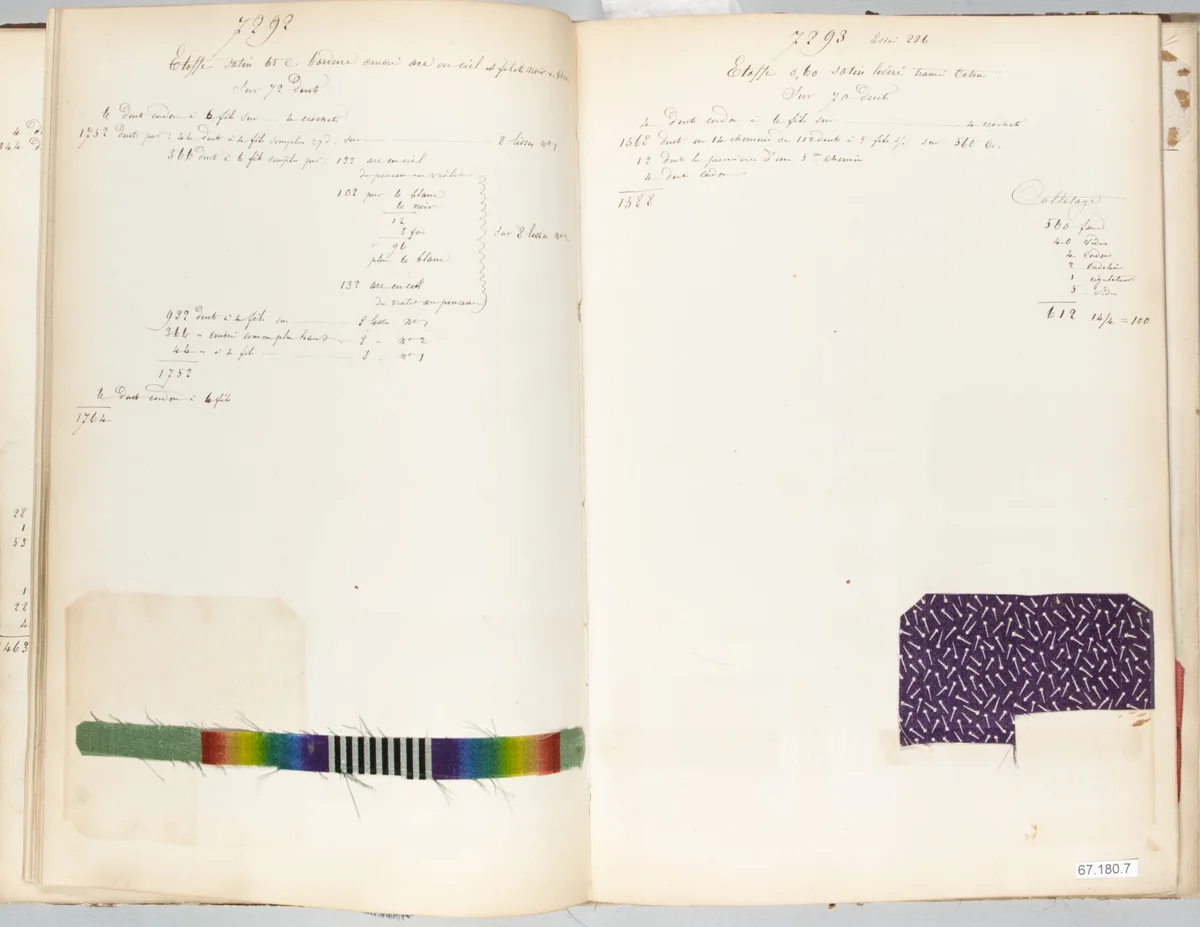 7292
Etoffe satin 65 c. bordure ombré arc en ciel et filets noir
Sur 72 Dents
6 Dent cordon à 6 fils sur 4 crochets
1752 Dents par: 44 dent à 4 fils simples sur 8 lisses nº 1
366 dent à 6 fils simples par: 132 arc en ciel
du ponceau au violet
102 par 6 blanc
6 noir
12
8 fois
96
plus 6 blanc
sur 8 lisses nº 2
132 arc en ciel
du violet au ponceau
932 dent à 4 fils sur 8 lisses nº 1
366 " ombré comme plus haut 8 " nº 2
44 " à 4 fils 8 " nº 1
1752
6 Dent cordon à 6 fils
1764
28
1
53
1
22
4
463
7293 Essai 226
Etoffe 0,60 satin liseré tramé Coton
Sur 70 Dents
4 Dents cordon à 6 fils sur 4 crochets
1568 dent en 14 chemins de 112 dents à 5 fils sur 560 Cr.
12 Dents le premier d'un 5me chemin
4 dent cordon
1588
Colletage
560 fond
40 vides
4 Cordon
2
1 régulateur
5 vides
612 14/4 = 100
67.180.7